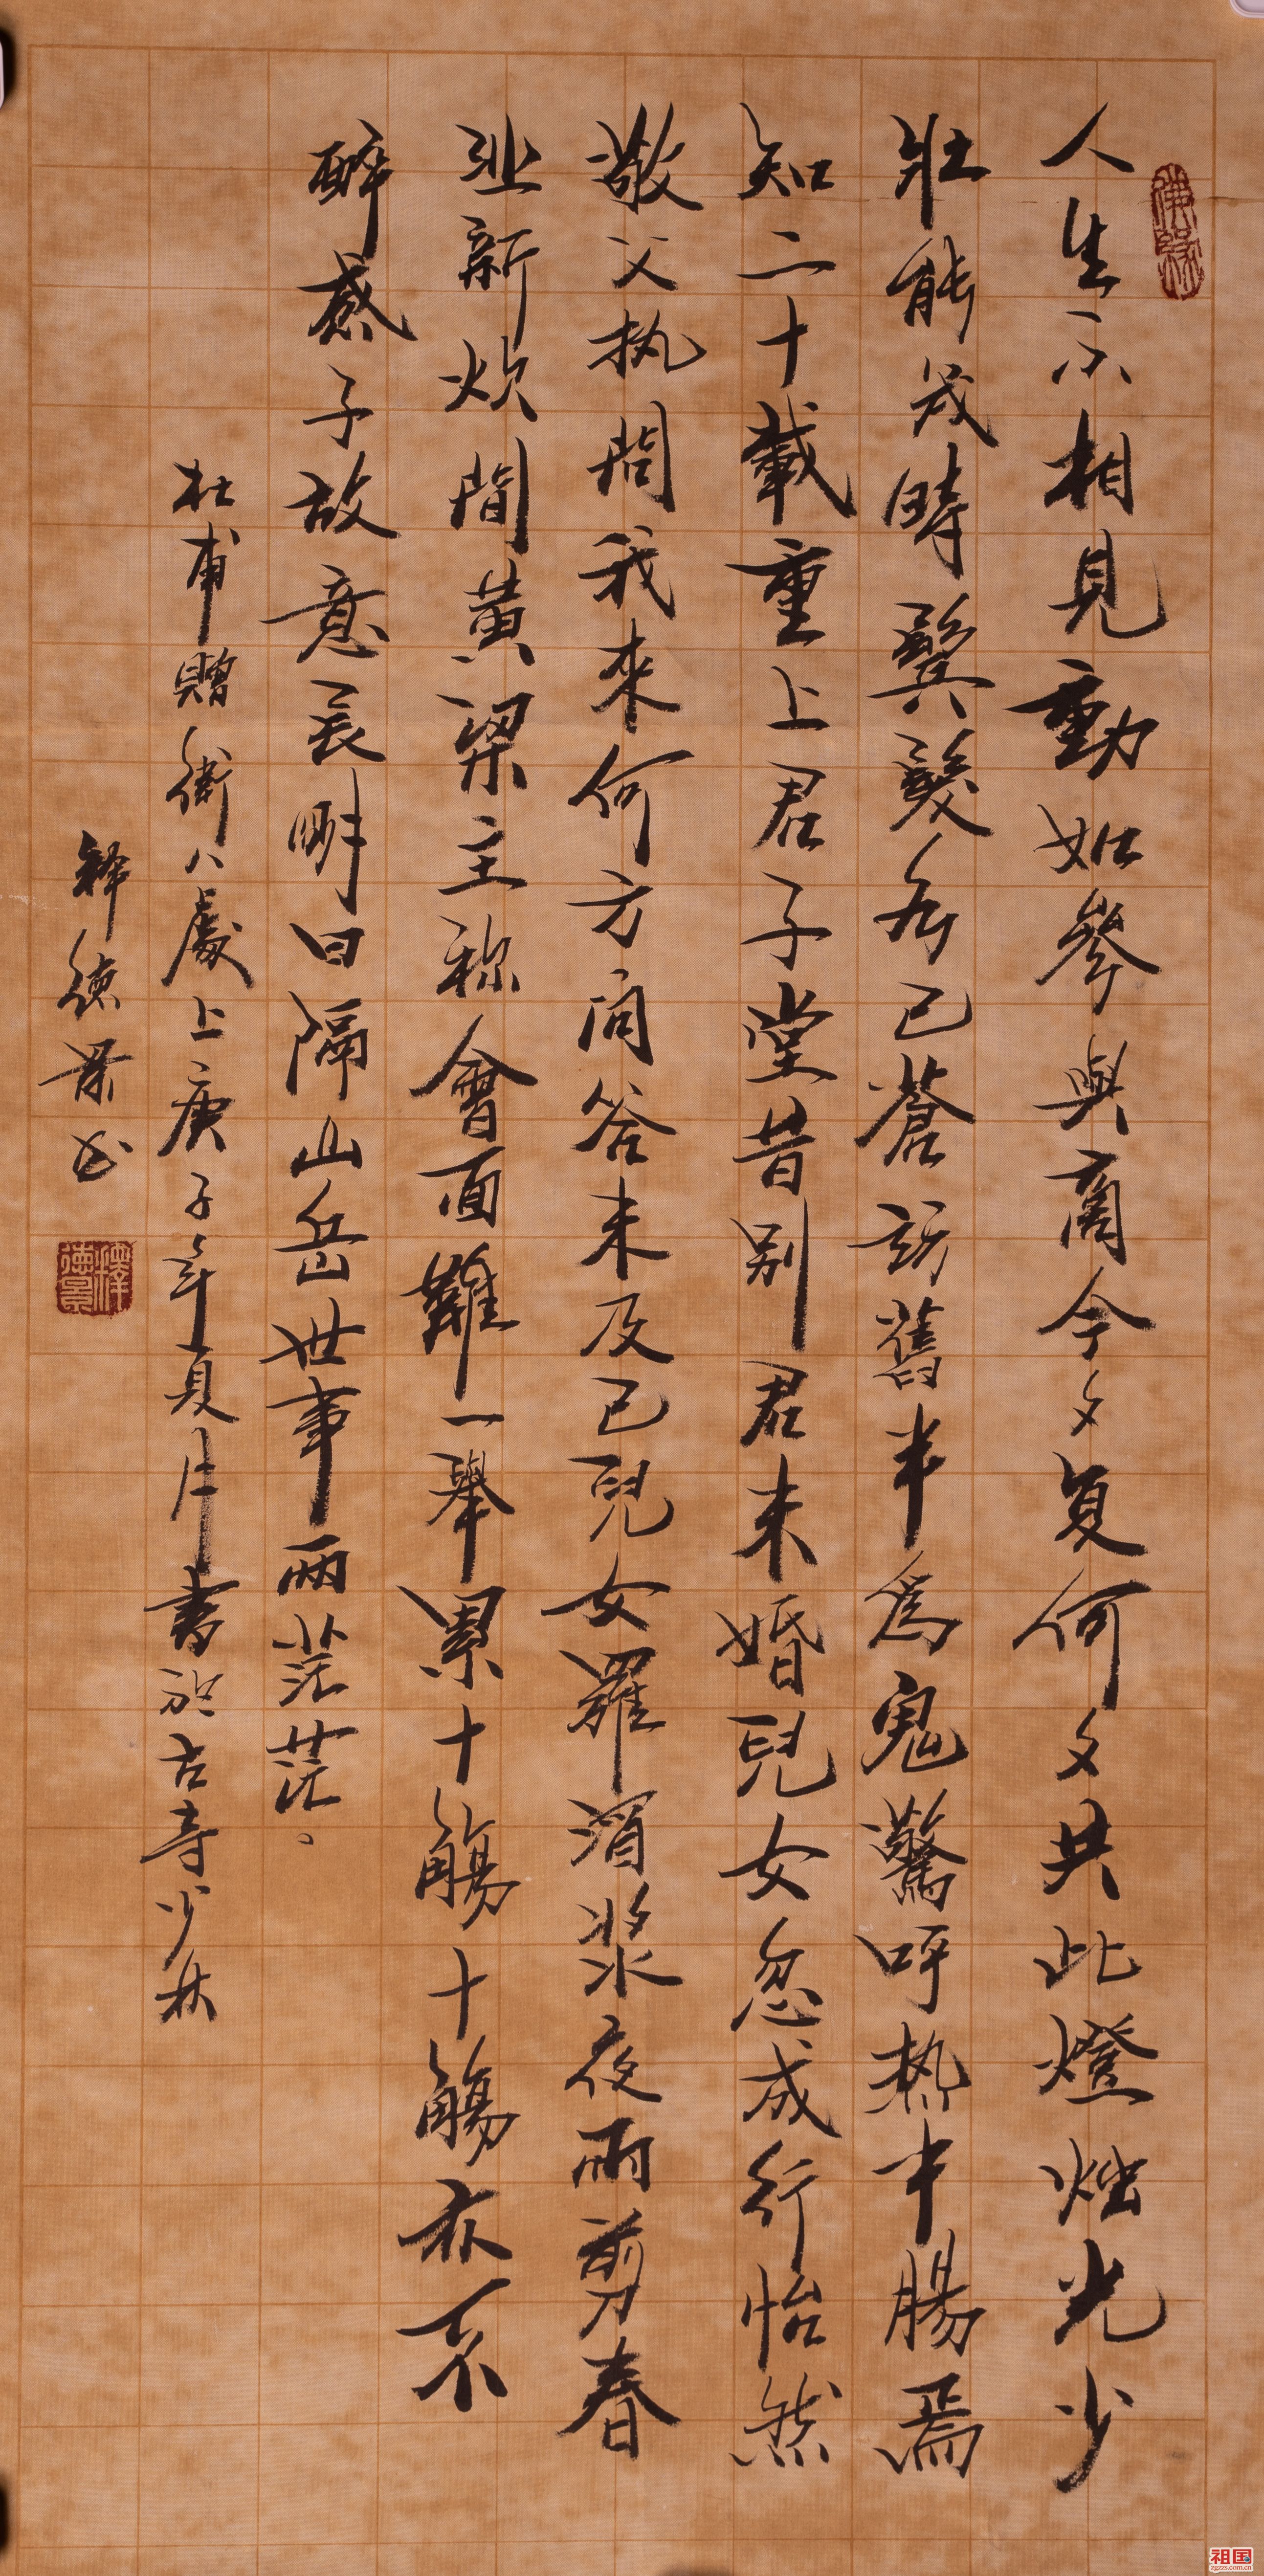 人生不相見動如參與商今夕复何夕共此燈烛光少
壯能幾時鬢髮各已蒼訪舊半為鬼驚呼热中腸焉
知二十載重上君子堂昔别君未婚兒女忽成行怡然
敬父执問我來何方问答未及已兒女羅酒浆夜雨剪春
韭新炊間黃梁主称會面難一舉累十觴十觴亦不
醉感子故意長明日隔山岳世事兩茫茫。
杜甫贈衛八處士庚子年夏月書於古寺少林
釋德景书
佛緣
釋德景
祖国
zgzzs.com.cn